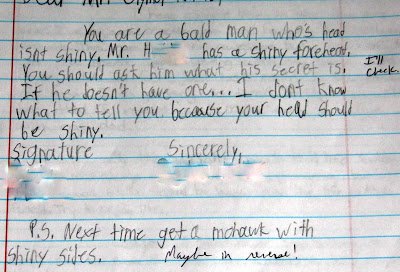 Dear Mr.
You are a bald man who's head
isnt shiny. Mr. H has a shiny forehead.
You should ask him what his secret is. I'll
If he doesn't have one... I dont know check.
what to tell you because your head should
be shiny.
Signature Sincerely,
P.S. Next time get a mohawk with
shiny sides. Maybe in reverse!